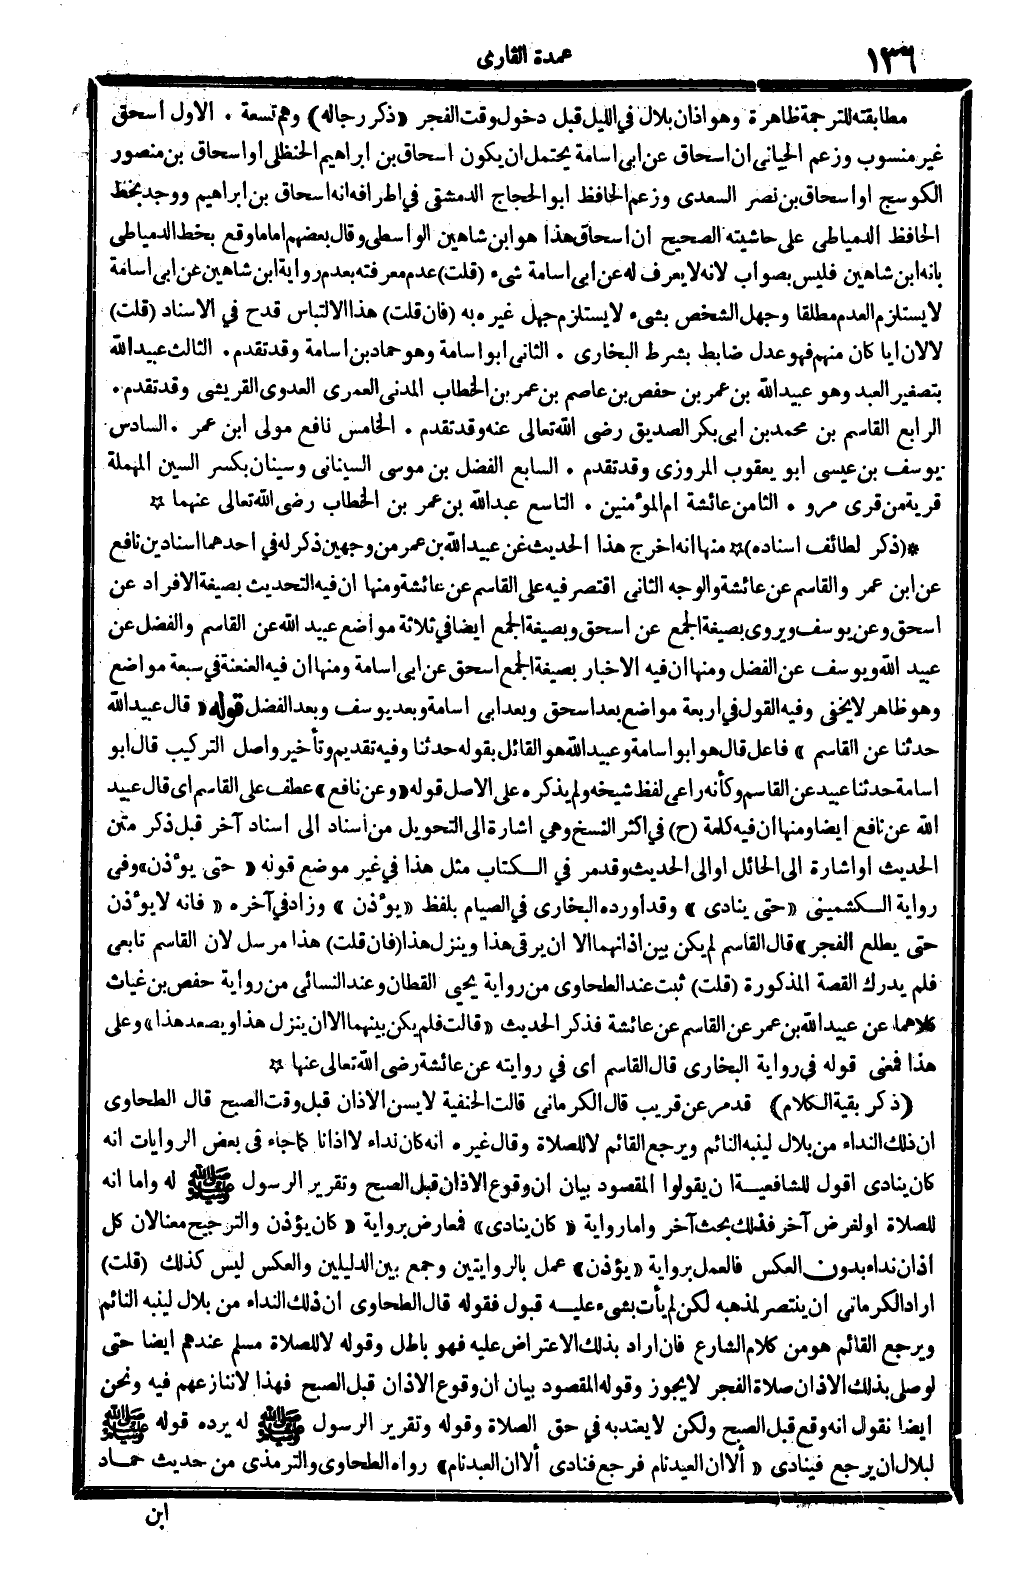 ١٣٦
عمدة القارى
مطابقته للترجمة ظاهرة وهو اذان بلال فى الليل قبل دخول وقت الفجر «ذكر رجاله» وهم تسعة . الاول اسحق
غير منسوب وزعم الجيانى ان اسحاق عن ابى اسامة يحتمل ان يكون اسحاق بن ابراهيم الحنظلى او اسحاق بن منصور
الكوسج او اسحاق بن نصر السعدى وزعم الحافظ ابو الحجاج الدمشقى فى اطرافه انه اسحاق بن ابراهيم ووجد بخط
الحافظ الدمياطى على حاشيته الصحيح ان اسحاق هذا هو ابن شاهين الواسطى وقال بعضهم اما ما وقع بخط الدمياطى
بانه ابن شاهين فليس بصواب لانه لا يعرف له عن ابى اسامة شىء (قلت) عدم معرفته بعدم رواية ابن شاهين عن ابى اسامة
لا يستلزم العدم مطلقا وجهل الشخص بشىء لا يستلزم جهل غيره به (فان قلت) هذا الالتباس قدح فى الاسناد (قلت)
لا لان ايا كان منهم فهو عدل ضابط بشرط البخارى . الثانى ابو اسامة وهو حماد بن اسامة وقد تقدم . الثالث عبيد الله
بتصغير العبد وهو عبيد الله بن عمر بن حفص بن عاصم بن عمر بن الخطاب المدنى العمرى العدوى القريشى وقد تقدم .
الرابع القاسم بن محمد بن ابى بكر الصديق رضى الله تعالى عنه وقد تقدم . الخامس نافع مولى ابن عمر . السادس
يوسف بن عيسى ابو يعقوب المروزى وقد تقدم . السابع الفضل بن موسى السينانى وسينان بكسر السين المهملة
قرية من قرى مرو . الثامن عائشة ام المؤمنين . التاسع عبد الله بن عمر بن الخطاب رضى الله تعالى عنهما ☆
*(ذكر لطائف اسناده)☆ منها انه اخرج هذا الحديث عن عبيد الله بن عمر من وجهين ذكر له فى احدهما اسنادين نافع
عن ابن عمر والقاسم عن عائشة والوجه الثانى اقتصر فيه على القاسم عن عائشة ومنها ان فيه التحديث بصيغة الافراد عن
اسحق وعن يوسف ويروى بصيغة الجمع عن اسحق وبصيغة الجمع ايضا فى ثلاثة مواضع عبيد الله عن القاسم والفضل عن
عبيد الله ويوسف عن الفضل ومنها ان فيه الاخبار بصيغة الجمع اسحق عن ابى اسامة ومنها ان فيه العنعنة فى سبعة مواضع
وهو ظاهر لا يخفى وفيه القول فى اربعة مواضع بعد اسحق وبعد ابى اسامة وبعد يوسف وبعد الفضل قوله « قال عبيد الله
حدثنا عن القاسم » فاعل قال هو ابو اسامة وعبيد الله هو القائل بقوله حدثنا وفيه تقديم وتأخير واصل التركيب قال ابو
اسامة حدثنا عبيد عن القاسم وكأنه راعى لفظ شيخه ولم يذكره على الاصل قوله «وعن نافع» عطف على القاسم اى قال عبيد
الله عن نافع ايضا ومنها ان فيه كلمة (ح) فى اكثر النسخ وهى اشارة الى التحويل من أسناد الى اسناد آخر قبل ذكر متن
الحديث او اشارة الى الحائل او الى الحديث وقد مر فى الكتاب مثل هذا فى غير موضع قوله « حتى يؤذن» وفى
رواية الكشميهنى «حتى ينادى» وقد أورده البخارى فى الصيام بلفظ «يؤذن» وزاد فى آخره « فانه لا يؤذن
حتى يطلع الفجر» قال القاسم لم يكن بين اذانهما الا ان يرقى هذا وينزل هذا (فان قلت) هذا مرسل لان القاسم تابعى
فلم يدرك القصة المذكورة (قلت) ثبت عند الطحاوى من رواية يحيى القطان وعند النسائى من رواية حفص بن غياث
كلاهما عن عبيد الله بن عمر عن القاسم عن عائشة فذكر الحديث «قالت فلم يكن بينهما الا ان ينزل هذا ويصعد هذا» وعلى
هذا فمعنى قوله فى رواية البخارى قال القاسم اى فى روايته عن عائشة رضى الله تعالى عنها ☆
(ذكر بقية الكلام) قد مر عن قريب قال الكرمانى قالت الحنفية لا يسن الاذان قبل وقت الصبح قال الطحاوى
ان ذلك النداء من بلال لينبه النائم ويرجع القائم لا للصلاة وقال غيره انه كان نداء لا اذانا كما جاء فى بعض الروايات انه
كان ينادى اقول للشافعية ان يقولوا المقصود بيان ان وقوع الاذان قبل الصبح وتقرير الرسول ﷺ له واما انه
للصلاة او لغرض آخر فذلك بحث آخر واما رواية « كان ينادى» فمعارض برواية « كان يؤذن والترجيح معنا لان كل
اذان نداء بدون العكس فالعمل برواية «يؤذن» عمل بالروايتين وجمع بين الدليلين والعكس ليس كذلك (قلت)
اراد الكرمانى ان ينتصر لمذهبه لكن لم يأت بشىء عليه قبول فقوله قال الطحاوى ان ذلك النداء من بلال لينبه النائم
ويرجع القائم هو من كلام الشارع فان اراد بذلك الاعتراض عليه فهو باطل وقوله لا للصلاة مسلم عندهم ايضا حتى
لو صلى بذلك الاذان صلاة الفجر لا يجوز وقوله المقصود بيان ان وقوع الاذان قبل الصبح فهذا لا ننازعهم فيه ونحن
ايضا نقول انه وقع قبل الصبح ولكن لا يعتد به فى حق الصلاة وقوله وتقرير الرسول ﷺ له يرده قوله ﷺ
لبلال ان يرجع فينادى « ألا ان العبد نام فرجع فنادى ألا ان العبد نام» رواه الطحاوى والترمذى من حديث حماد
ابن